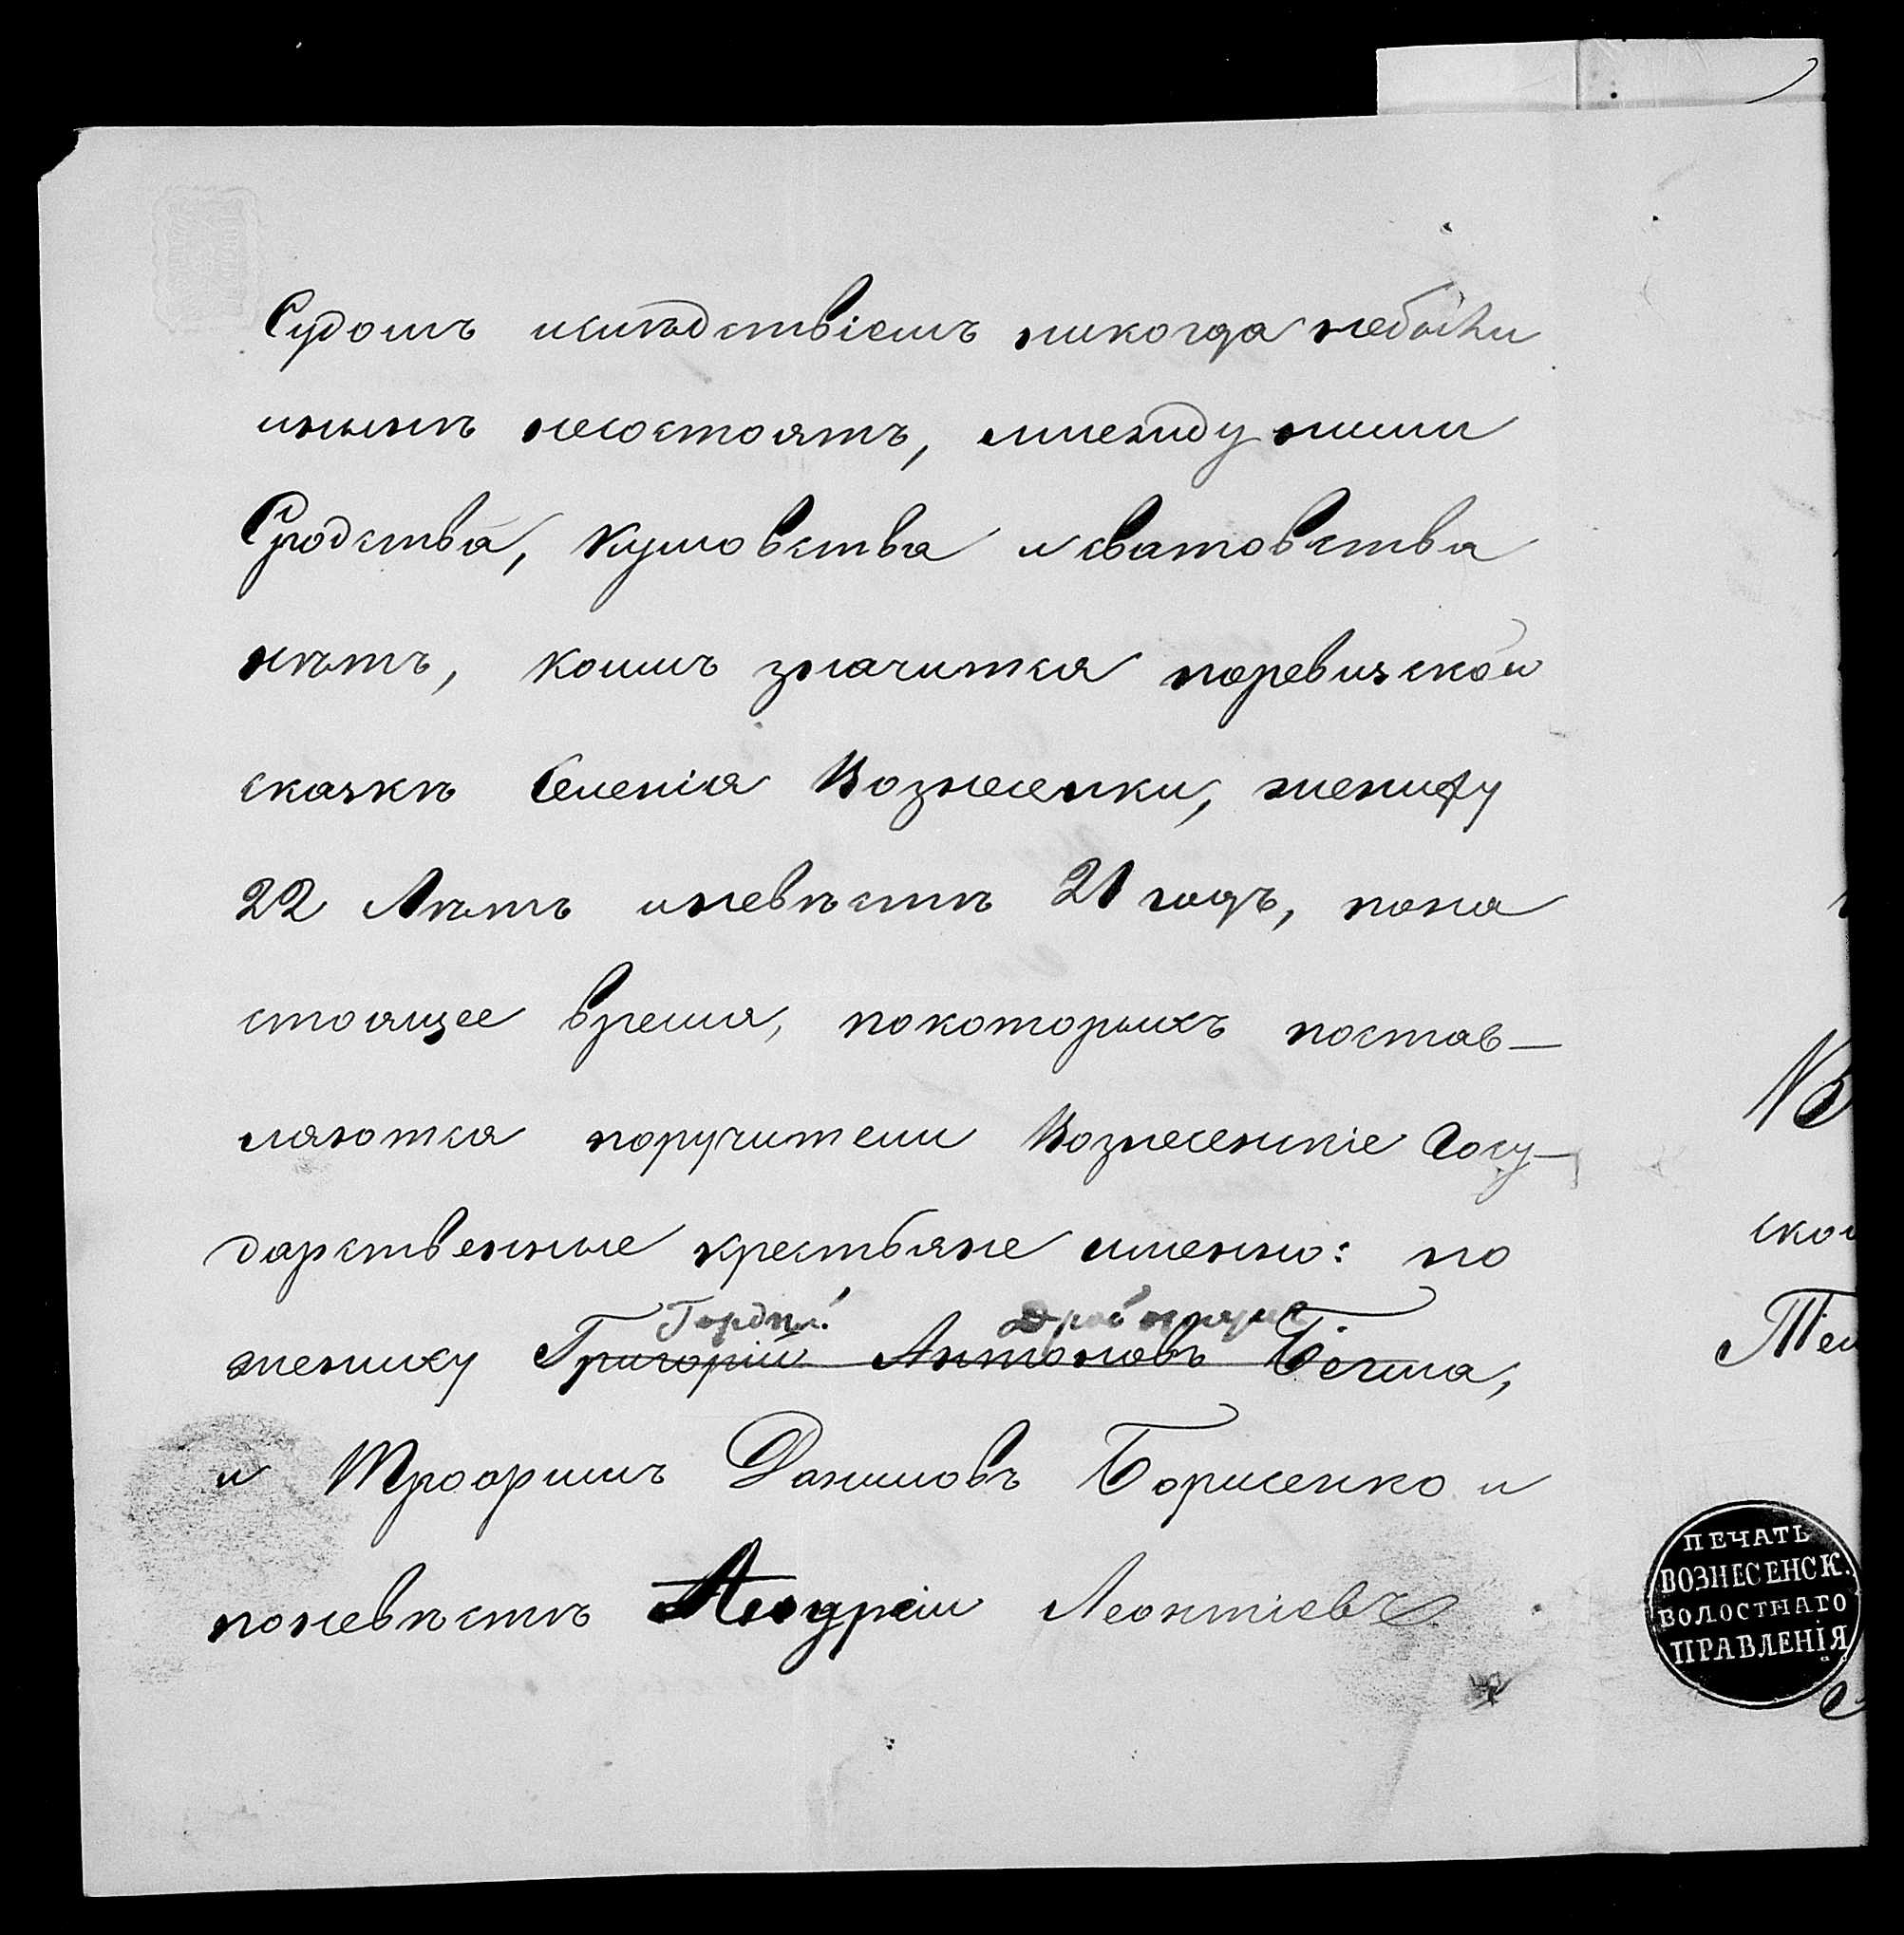 Судомъ ислѣдствіемъ никогда небыли
инынѣ несостоятъ, имежду ними
Сродства, Кумовства и сватовства
нѣтъ, коимъ значится поревизской
сказкѣ Селенія Вознесенки, жениху
22 Лѣтъ иневѣстѣ 21 годъ, пона
стоящее время, покоторыхъ постав—
ляются поручители Вознесенскіе Госу—
дарственные крестьяне именно: по
Гордѣй
жениху Григорій Антоновъ Бѣгма,
и Трофимъ Даниловъ Борисенко и
поневѣстѣ Андрей Леонтіевъ
№
ской
ПЕЧАТЬ
ВОЗНЕСЕНСК.
ВОЛОСТНАГО
ПРАВЛЕНІЯ